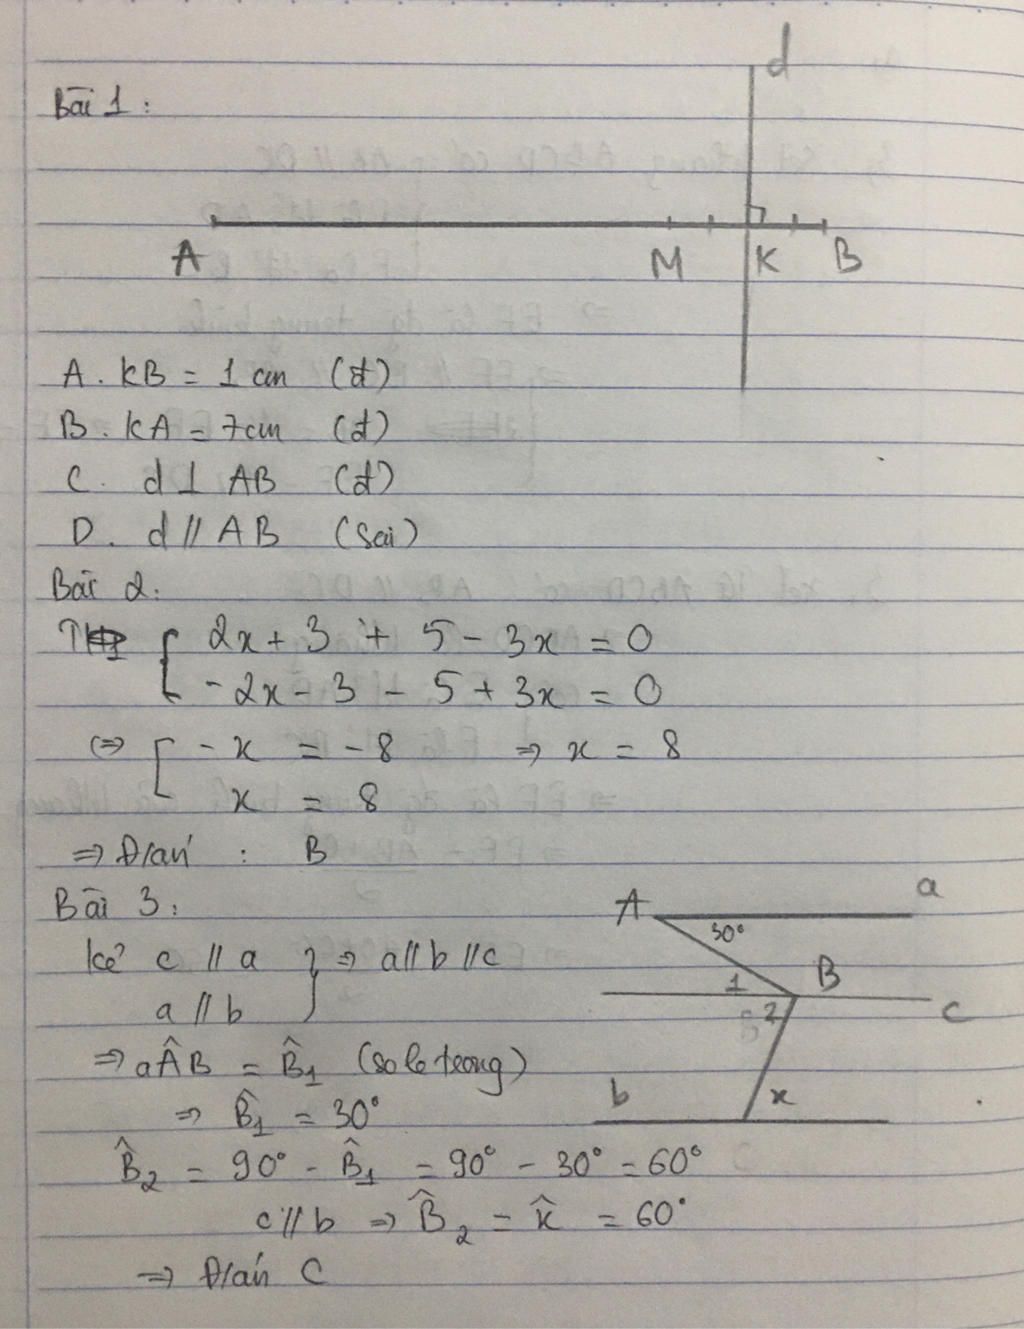 Bài 1:
d
A M K B
A. kB = 1 cm (đ)
B. kA = 7cm (đ)
C. d ⊥ AB (đ)
D. d // AB (Sai)
Bài 2:
{ 2x + 3 + 5 - 3x = 0
- 2x - 3 - 5 + 3x = 0
⇔ [ - x = - 8 ⇒ x = 8
x = 8
⇒ Đ/án : B
Bài 3:
A a
30°
kẻ c // a } ⇒ a // b // c
a // b
1 B
2 c
⇒ aÂB = B̂1 (so le trong)
b x
⇒ B̂1 = 30°
B̂2 = 90° - B̂1 = 90° - 30° = 60°
c // b ⇒ B̂2 = x̂ = 60°
⇒ Đ/án C